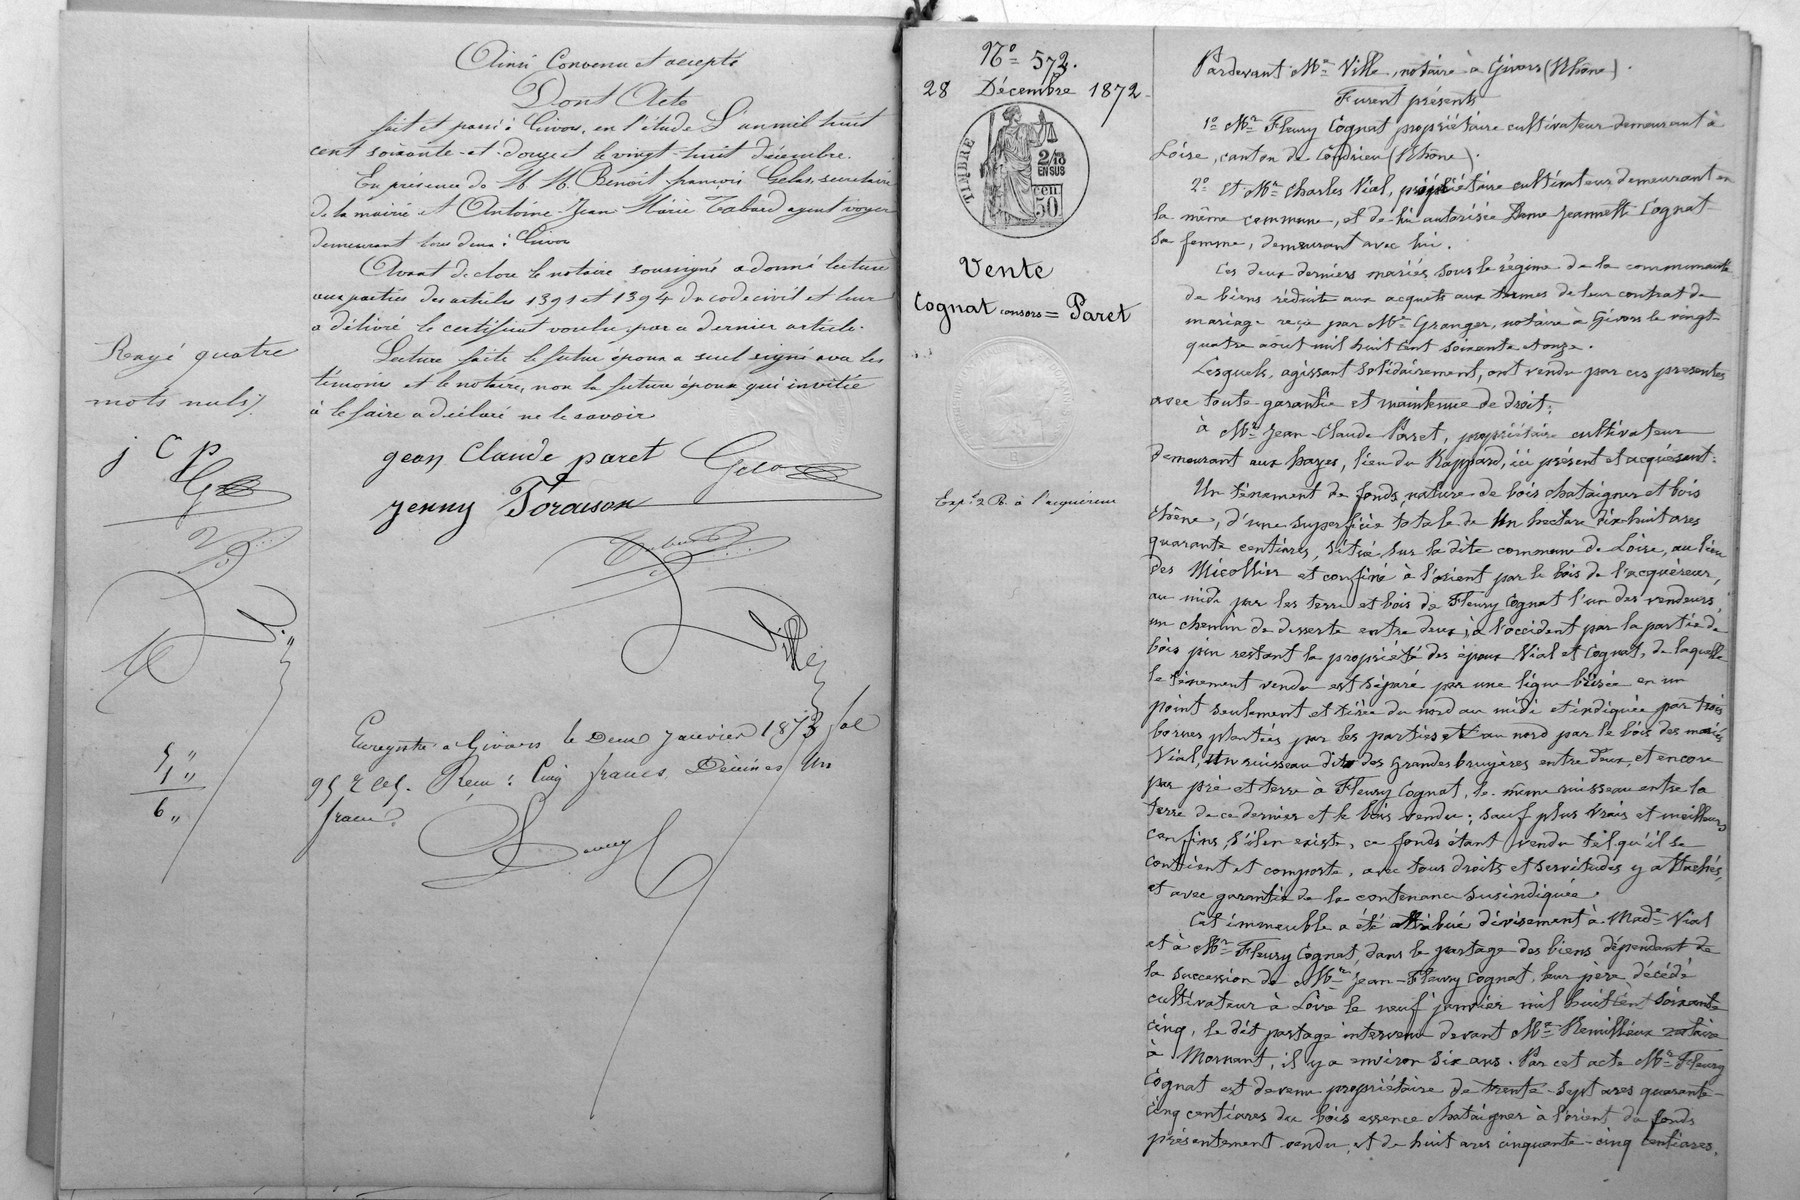 Ainsi Convenu et accepté
Dont Acte
fait et passé à Givors, en l'étude L'an mil huit
cent soixante-et-douze et le vingt-huit décembre.
En présence de M. M. Benoît-françois Gelas, secretaire
de la mairie et Antoine-Jean Marie Tabard agent voyer
demeurant tous deux à Givors
Avant de clore le notaire soussigné a donné lecture
aux parties des articles 1391 et 1394 du code civil et leur
a délivré le certificat voulu par ce dernier article.
Lecture faite le futur époux a seul signé avec les
témoins et le notaire, non la future épouse qui invitée
à le faire a déclaré ne le savoir
Rayé quatre
mots nuls
j C p
jean Claude paret
jenny
Ville
Enregistré à Givors le Deux Janvier 1873 fol
95 R C 5. Reçu : Cinq francs, Décimes Un
franc.
5 "
1 "
6 "
N° 572.
28 Décembre 1872
TIMBRE
2/10
EN SUS
50 cen
Vente
Cognat consors = Paret
Expé 2 R. à l'acquéreur
Pardevant Me Ville, notaire à Givors (Rhône).
Furent présents
1° Mr Fleury Cognat propriétaire cultivateur demeurant à
Loire, canton de Condrieu (Rhône).
2° Et Mr Charles Vial, propriétaire cultivateur demeurant en
la même commune, et de lui autorisée Dame Jeannette Cognat
sa femme, demeurant avec lui.
Ces deux derniers mariés sous le régime de la communauté
de biens réduite aux acquets aux termes de leur contrat de
mariage reçu par Me Granger, notaire à Givors le vingt-
quatre aout mil huit cent soixante et onze.
Lesquels, agissant solidairement, ont vendu par ces présentes
avec toute garantie et maintenue de droit,
à Mr Jean-Claude Paret, propriétaire cultivateur
demeurant aux hayes, lieu du Rappard, ici présent et acquérant :
Un tènement de fonds nature de bois chataigner et bois
chêne, d'une superficie totale de Un hectare dix huit ares
quarante centiares, situé sur la dite commune de Loire, au lieu
des Micollier et confiné à l'orient par le bois de l'acquéreur,
au midi par les terre et bois de Fleury Cognat l'un des vendeurs,
un chemin de desserte entre deux, à l'occident par la partie de
bois pin restant la propriété des époux Vial et Cognat, de laquelle
le tènement vendu est séparé par une ligne brisée en un
point seulement et tirée du nord au midi et indiquée par trois
bornes plantées par les parties et au nord par le bois des mariés
Vial, Un ruisseau dit des Grandes bruyères entre deux, et encore
par pré et terre à Fleury Cognat, le même ruisseau entre la
terre de ce dernier et le bois vendu ; sauf plus vrais et meilleurs
confins, s'il en existe, ce fonds étant vendu tel qu'il se
contient et comporte, avec tous droits et servitudes y attachés,
et avec garantie de la contenance susindiquée.
Cet immeuble a été attribué divisement à Made Vial
et à Mr Fleury Cognat, dans le partage des biens dépendant de
la succession de Mr Jean-Fleury Cognat, leur père décédé
cultivateur à Loire le neuf janvier mil huit cent soixante
cinq, le dit partage intervenu devant Me Remillieux notaire
à Mornant, il y a environ six ans. Par cet acte Mr Fleury
Cognat est devenu propriétaire de trente-sept ares quarante-
cinq centiares du bois essence chataigner à l'orient du fonds
présentement vendu, et de huit ares cinquante-cinq centiares,